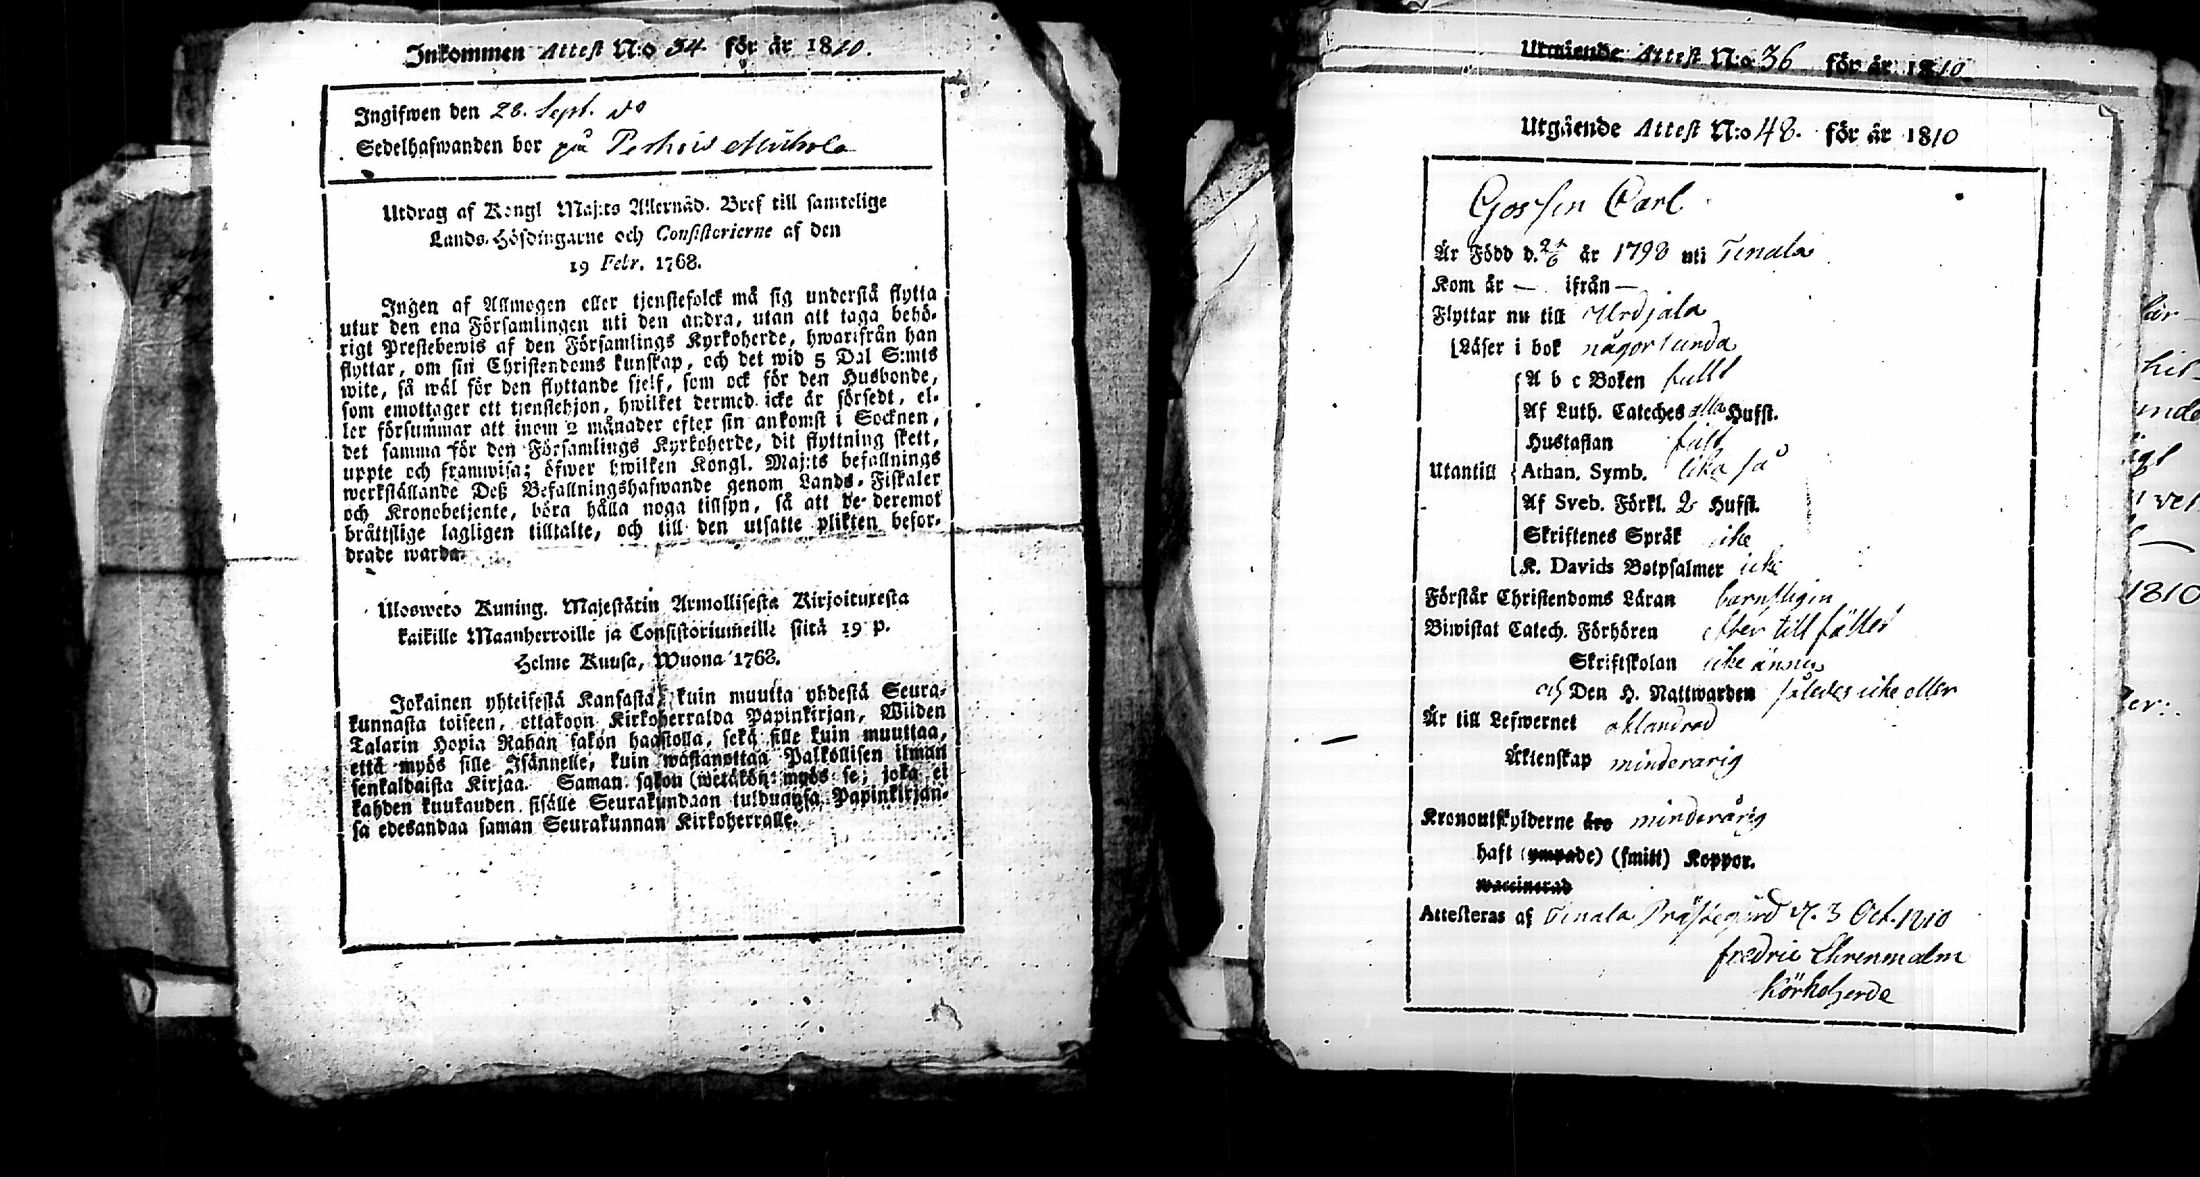 Inkommen Attest N:o 54 för år 1810.
Ingifwen den 28. Sept. do
Sedelhafwanden bor på
Utdrag af Kongl Maj:ts Allernåd. Bref till samtelige
Lands-Höfdingarne och Consistorierne af den
19 Febr. 1768.
Ingen af Allmogen eller tjenstefolck må sig understå flytta
utur den ena Församlingen uti den andra, utan att taga behö-
rigt Prestebewis af den Församlings Kyrkoherde, hwarifrån han
flyttar, om sin Christendoms kunskap, och det wid 5 Dal S:mts
wite, så wäl för den flyttande sjelf, som ock för den Husbonde,
som emottager ett tjenstehjon, hwilket dermed icke är försedt, el-
ler försummar att inom 2 månader efter sin ankomst i Socknen,
det samma för den Församlings Kyrkoherde, dit flyttning skett,
uppte och framwisa; öfwer hwilken Kongl. Maj:ts befallnings
werkställande Deß Befallningshafwande genom Lands-Fiskaler
och Kronobetjente, böra hålla noga tillsyn, så att de deremot
bråttslige lagligen tilltalte, och till den utsatte plikten befor-
drade warda.
Ulosweto Kuning. Majestätin Armollisesta Kirjoituxesta
kaikille Maanherroille ja Consistoriumeille siitä 19 p.
Helme Kuusa, Wuona 1768.
Jokainen yhteisestä Kansasta, kuin muutta yhdestä Seura-
kunnasta toiseen, ottakoon Kirkoherralda Papinkirjan, Wiiden
Talarin Hopia Rahan sakon haastolla, sekä sille kuin muuttaa,
että myös sille Isännelle, kuin wastanottaa Palkollisen ilman
senkaldaista Kirjaa. Saman sakon wetäkön myös se, joka ei
kahden kuukauden sisälle Seurakundaan tulduansa, Papinkirjan-
sa edesandaa saman Seurakunnan Kirkoherralle.
Utgående Attest N:o 36 för år 1810
Utgående Attest N:o 48. för år 1810
Gossen Carl
Är Född d. år 1798 uti Tenala
Kom år — ifrån —
Flyttar nu till Urdjala
Läser i bok någorlunda
A b c Boken fullt
Af Luth. Cateches alla Hufst.
Hustaflan fullt
Utantill Athan. Symb. lika så
Af Sveb. Förkl. 2 Hufst.
Skriftenes Språk icke
K. Davids Botpsalmer icke
Förstår Christendoms Läran barnsligen
Biwistat Catech. Förhören efter tillfället
Skriftskolan icke ännu
och Den H. Nattwarden således icke eller
Är till Lefwernet oklandrad
Äktenskap minderårig
Kronoutskylderne äro minderårig
haft (ympade) (smitt) Koppor.
waccinerad
Attesteras af Tenala Prästegård d. 3 Oct. 1810
Fredric Ehrenmalm
Körkoherde
1810